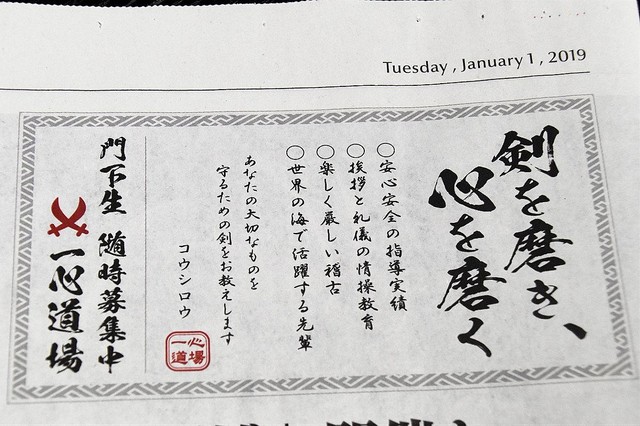 Tuesday , January 1 , 2019
剣を磨き、
心を磨く
○安心安全の指導実績
○挨拶と礼儀の情操教育
○楽しく厳しい稽古
○世界の海で活躍する先輩
あなたの大切なものを
守るための剣をお教えします
コウシロウ
一心
道場
門下生 随時募集中
一心道場